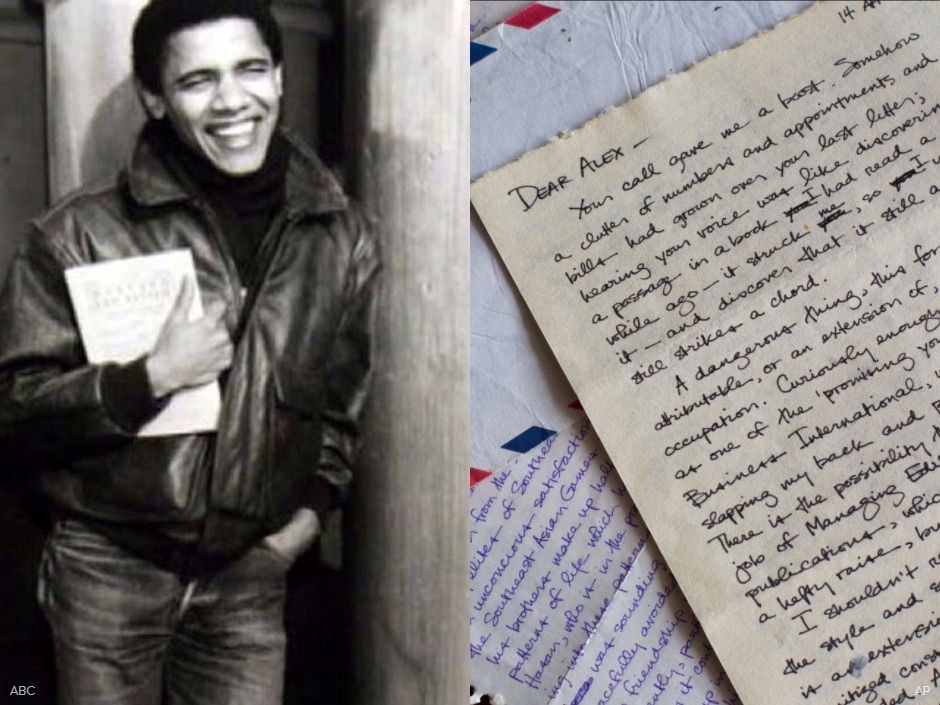 ABC
14 A
DEAR ALEX —
Your call gave me a boost. Somehow
a clutter of numbers and appointments and
bills had grown over your last letter;
hearing your voice was like discovering
a passage in a book I had read a
while ago — it struck me, so I
it — and discover that it still
still strikes a chord.
A dangerous thing, this for
attributable, or an extension of,
occupation. Curiously enough
as one of the 'promising yo
Business International,
slapping my back and
There is the possibility
job of Managing Edi
publications, whic
a hefty raise, bu
I shouldn't
the style and
is an extensi
itized const
from the
elites of Southeas
unconscious satisfaction
the Southeast Asian Games
his brothers make up hal
patterns of life which
Hasan, who is in the pr
into these patterns
was sounding
cefully avoide
friendship
AP